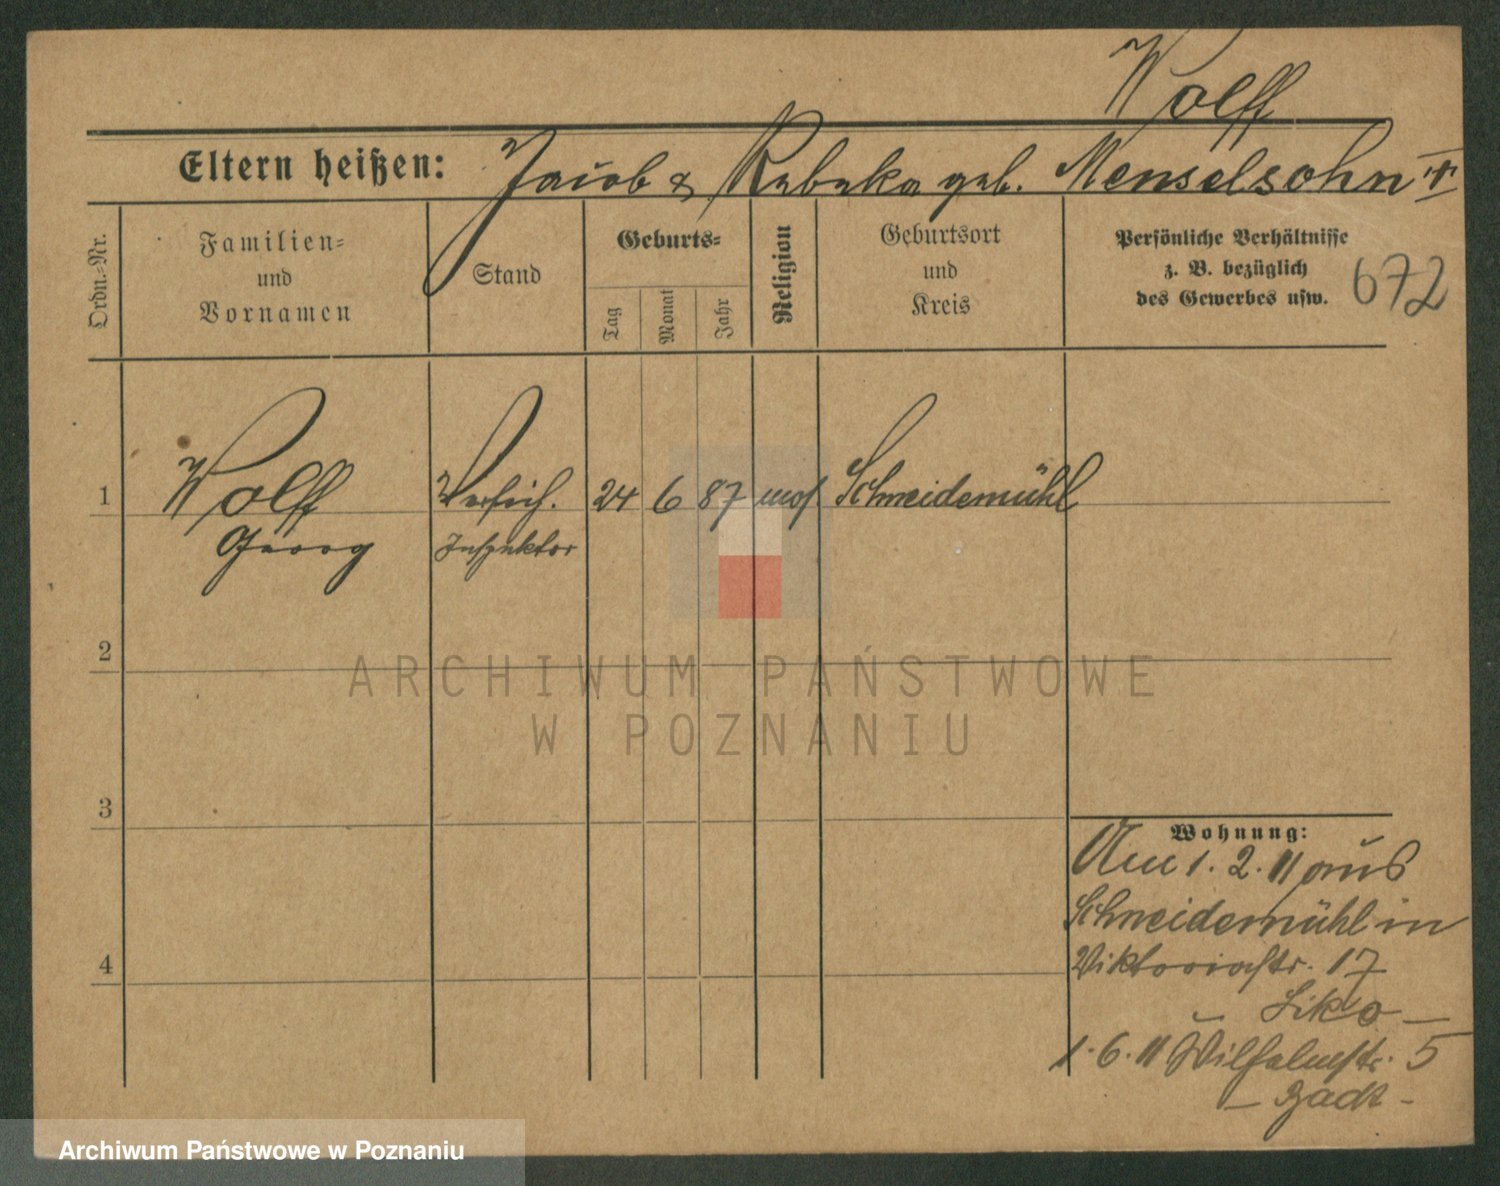 Wolff
Eltern heißen: Jacob & Rebeka geb. Menselsohn
Ordn.-Nr.
Familien-
und
Vornamen
Stand
Geburts-
Tag
Monat
Jahr
Religion
Geburtsort
und
Kreis
Persönliche Verhältnisse
z. B. bezüglich
des Gewerbes usw.
672
1 Wolff Versich. 24 6 87 mos. Schneidemühl
Georg Inspektor
2
ARCHIWUM PAŃSTWOWE
W POZNANIU
3
Wohnung:
Am 1. 2. 11 aus
Schneidemühl in
4
Viktoriastr. 17
1. 6. 11 Wilhelmstr. 5
Archiwum Państwowe w Poznaniu